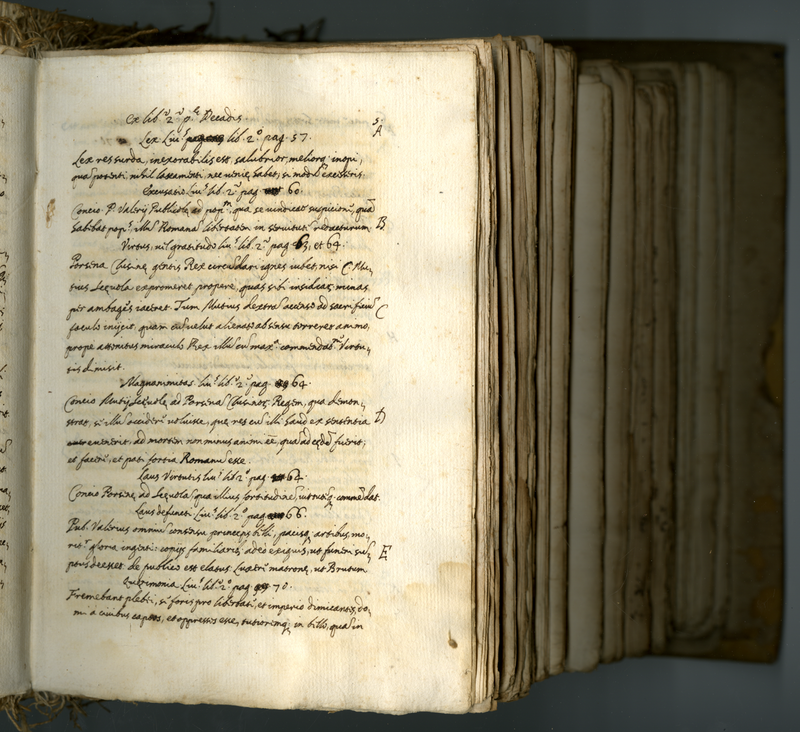 Ex lib.º 2.º p.ᵉ Decadis.
5.
A
Lex Liu.ˢ lib. 2.º pag. 57.
Lex res surda, inexorabilis est, salubrior, meliorq. inopi,
qua potenti, nihil laxamenti, nec venie habet, si modu excesseris.
Excusatio Liu.ˢ lib. 2.º pag. 60.
Concio P. Valerij Publicole ad pop.ᵐ, qua se vindicat suspicioni, qua
habebat pop.ˢ illu Romana libertatem in servitute redacturum
B
Virtus, vil gratitudo liu.ˢ lib. 2.º pag. 63, et 64.
Porsena Clusine gentis Rex circudari ignes iubet, nisi C. Mu,,
tius Sceuola expromeret propere, quas sibi insidias, minas
per ambages iaceret. Tum Mutius dextra accenso ad sacrificiu
C
faculo inijcit, quam cu velut alienato ab sensu torreret animo,
prope attonitus miraculo Rex illu cu max.ᵃ commendat.ⁿᵉ Virtu,,
tis dimisit.
Magnanimitas liu.ˢ lib. 2.º pag. 64.
Concio Mutij Sceuole ad Porsena Clusinor. Regem, qua demon,,
strat, si illu occidere voluisse, que res cu illi haud ex sententia
D
evenerit, ad mortem non minus animi ee, qua ad cede fuerit;
et facere, et pati fortia Romanu esse.
Laus Virtutis liu.ˢ lib. 2.º pag. 64.
Concio Porsine ad Sceuola, qua illius fortitudine, virtuteq. commedat.
Laus defuncti Liu.ˢ lib. 2.º pag. 66.
Pub. Valerius omniu consensu princeps belli, pacisq. artibus, mo,,
rit.ʳ gloria ingenti: copijs familiaris adeo exiguis, ut funeri su,,
E
ptus deesset. de publico est elatus. Luxere matrone, ut Brutum
Querimonia Liu.ˢ lib. 2.º pag. 70.
Fremebant plebei, si foris pro libertate, et imperio dimicantes, do,,
mi a civibus captos, et oppressos esse, tutioremq. in bello, qua in